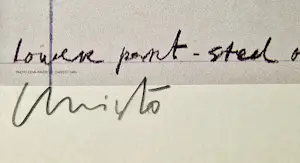 Lower part - steel
Christo